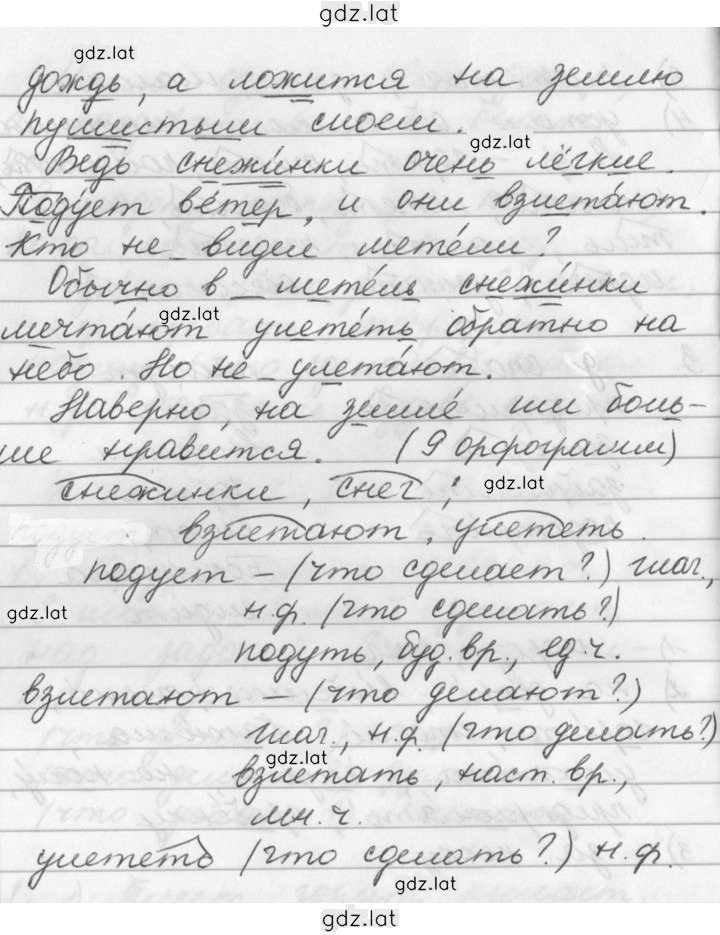 gdz.lat
gdz.lat
дождь, а ложится на землю
пушистым слоем.
gdz.lat
Ведь снежинки очень лёгкие.
Подует ве́тер, и они взлета́ют.
Кто не видел мете́ли?
Обычно в мете́ль снежи́нки
gdz.lat
мечта́ют улете́ть обратно на
небо. Но не улета́ют.
Наверно, на земле́ им боль-
ше нравится. (9 орфограмм)
снежинки, снег;
gdz.lat
взлетают, улететь.
подует – (что сделает?) глаг.,
gdz.lat
н.ф. (что сделать?)
подуть, буд. вр., ед.ч.
взлетают – (что делают?)
глаг., н.ф. (что делать?)
gdz.lat
взлетать, наст. вр.,
мн. ч.
улететь (что сделать?) н.ф.
gdz.lat
gdz.lat